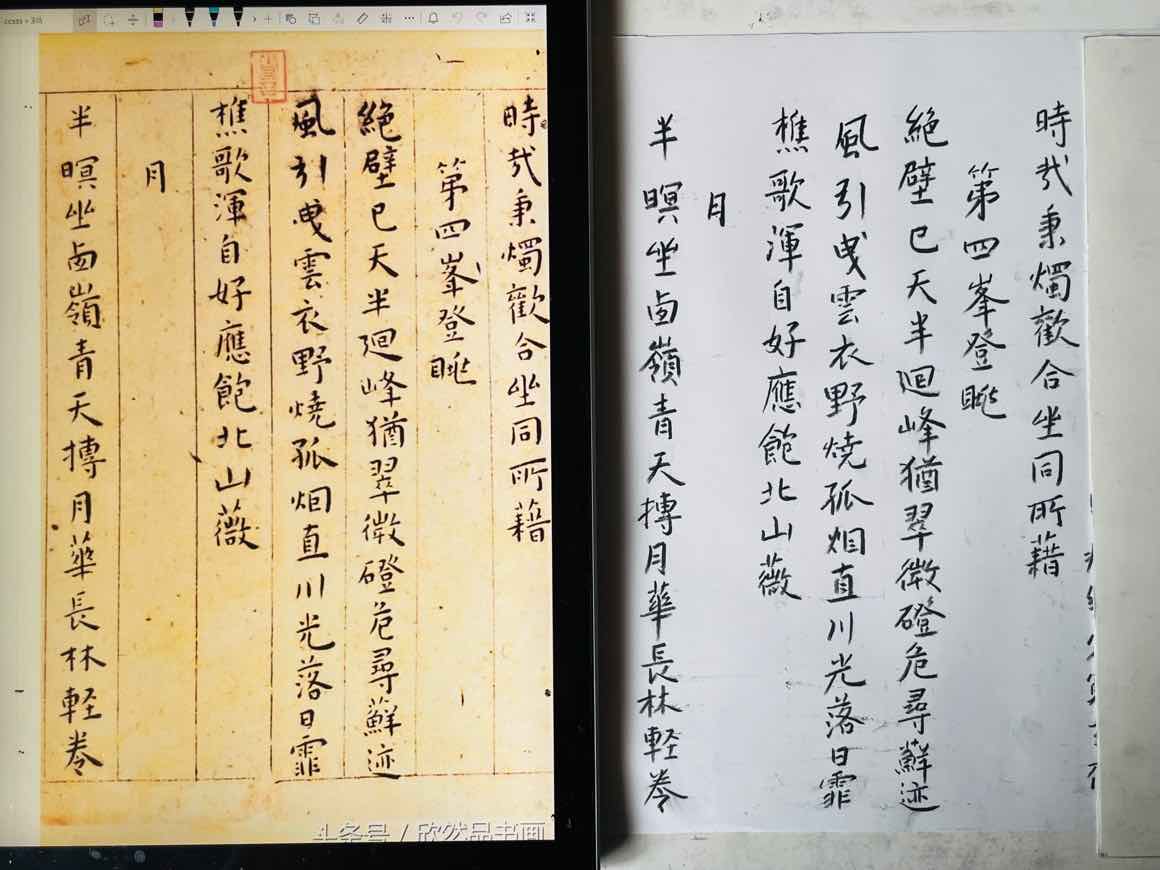 時哉秉燭歡合坐同所藉
第四峯登眺
絕壁已天半迴峰猶翠微磴危尋蘚迹
風引曳雲衣野燒孤烟直川光落日霏
樵歌渾自好應飽北山薇
月
半暝坐卤嶺青天摶月華長林輕卷
头条号 / 欣然品书画
時哉秉燭歡合坐同所藉
第四峯登眺
絕壁已天半迴峰猶翠微磴危尋蘚迹
風引曳雲衣野燒孤烟直川光落日霏
樵歌渾自好應飽北山薇
月
半暝坐卤嶺青天摶月華長林輕卷